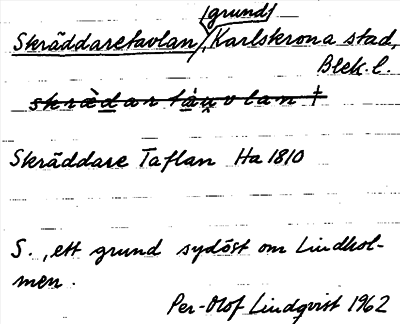 (grund)
Skräddaretavlan, Karlskrona stad,
Blek. l.
skrädartàu̯vlan †
Skräddare Taflan Ha 1810
S., ett grund sydöst om Lindhol-
men.
Per-Olof Lindqvist 1962